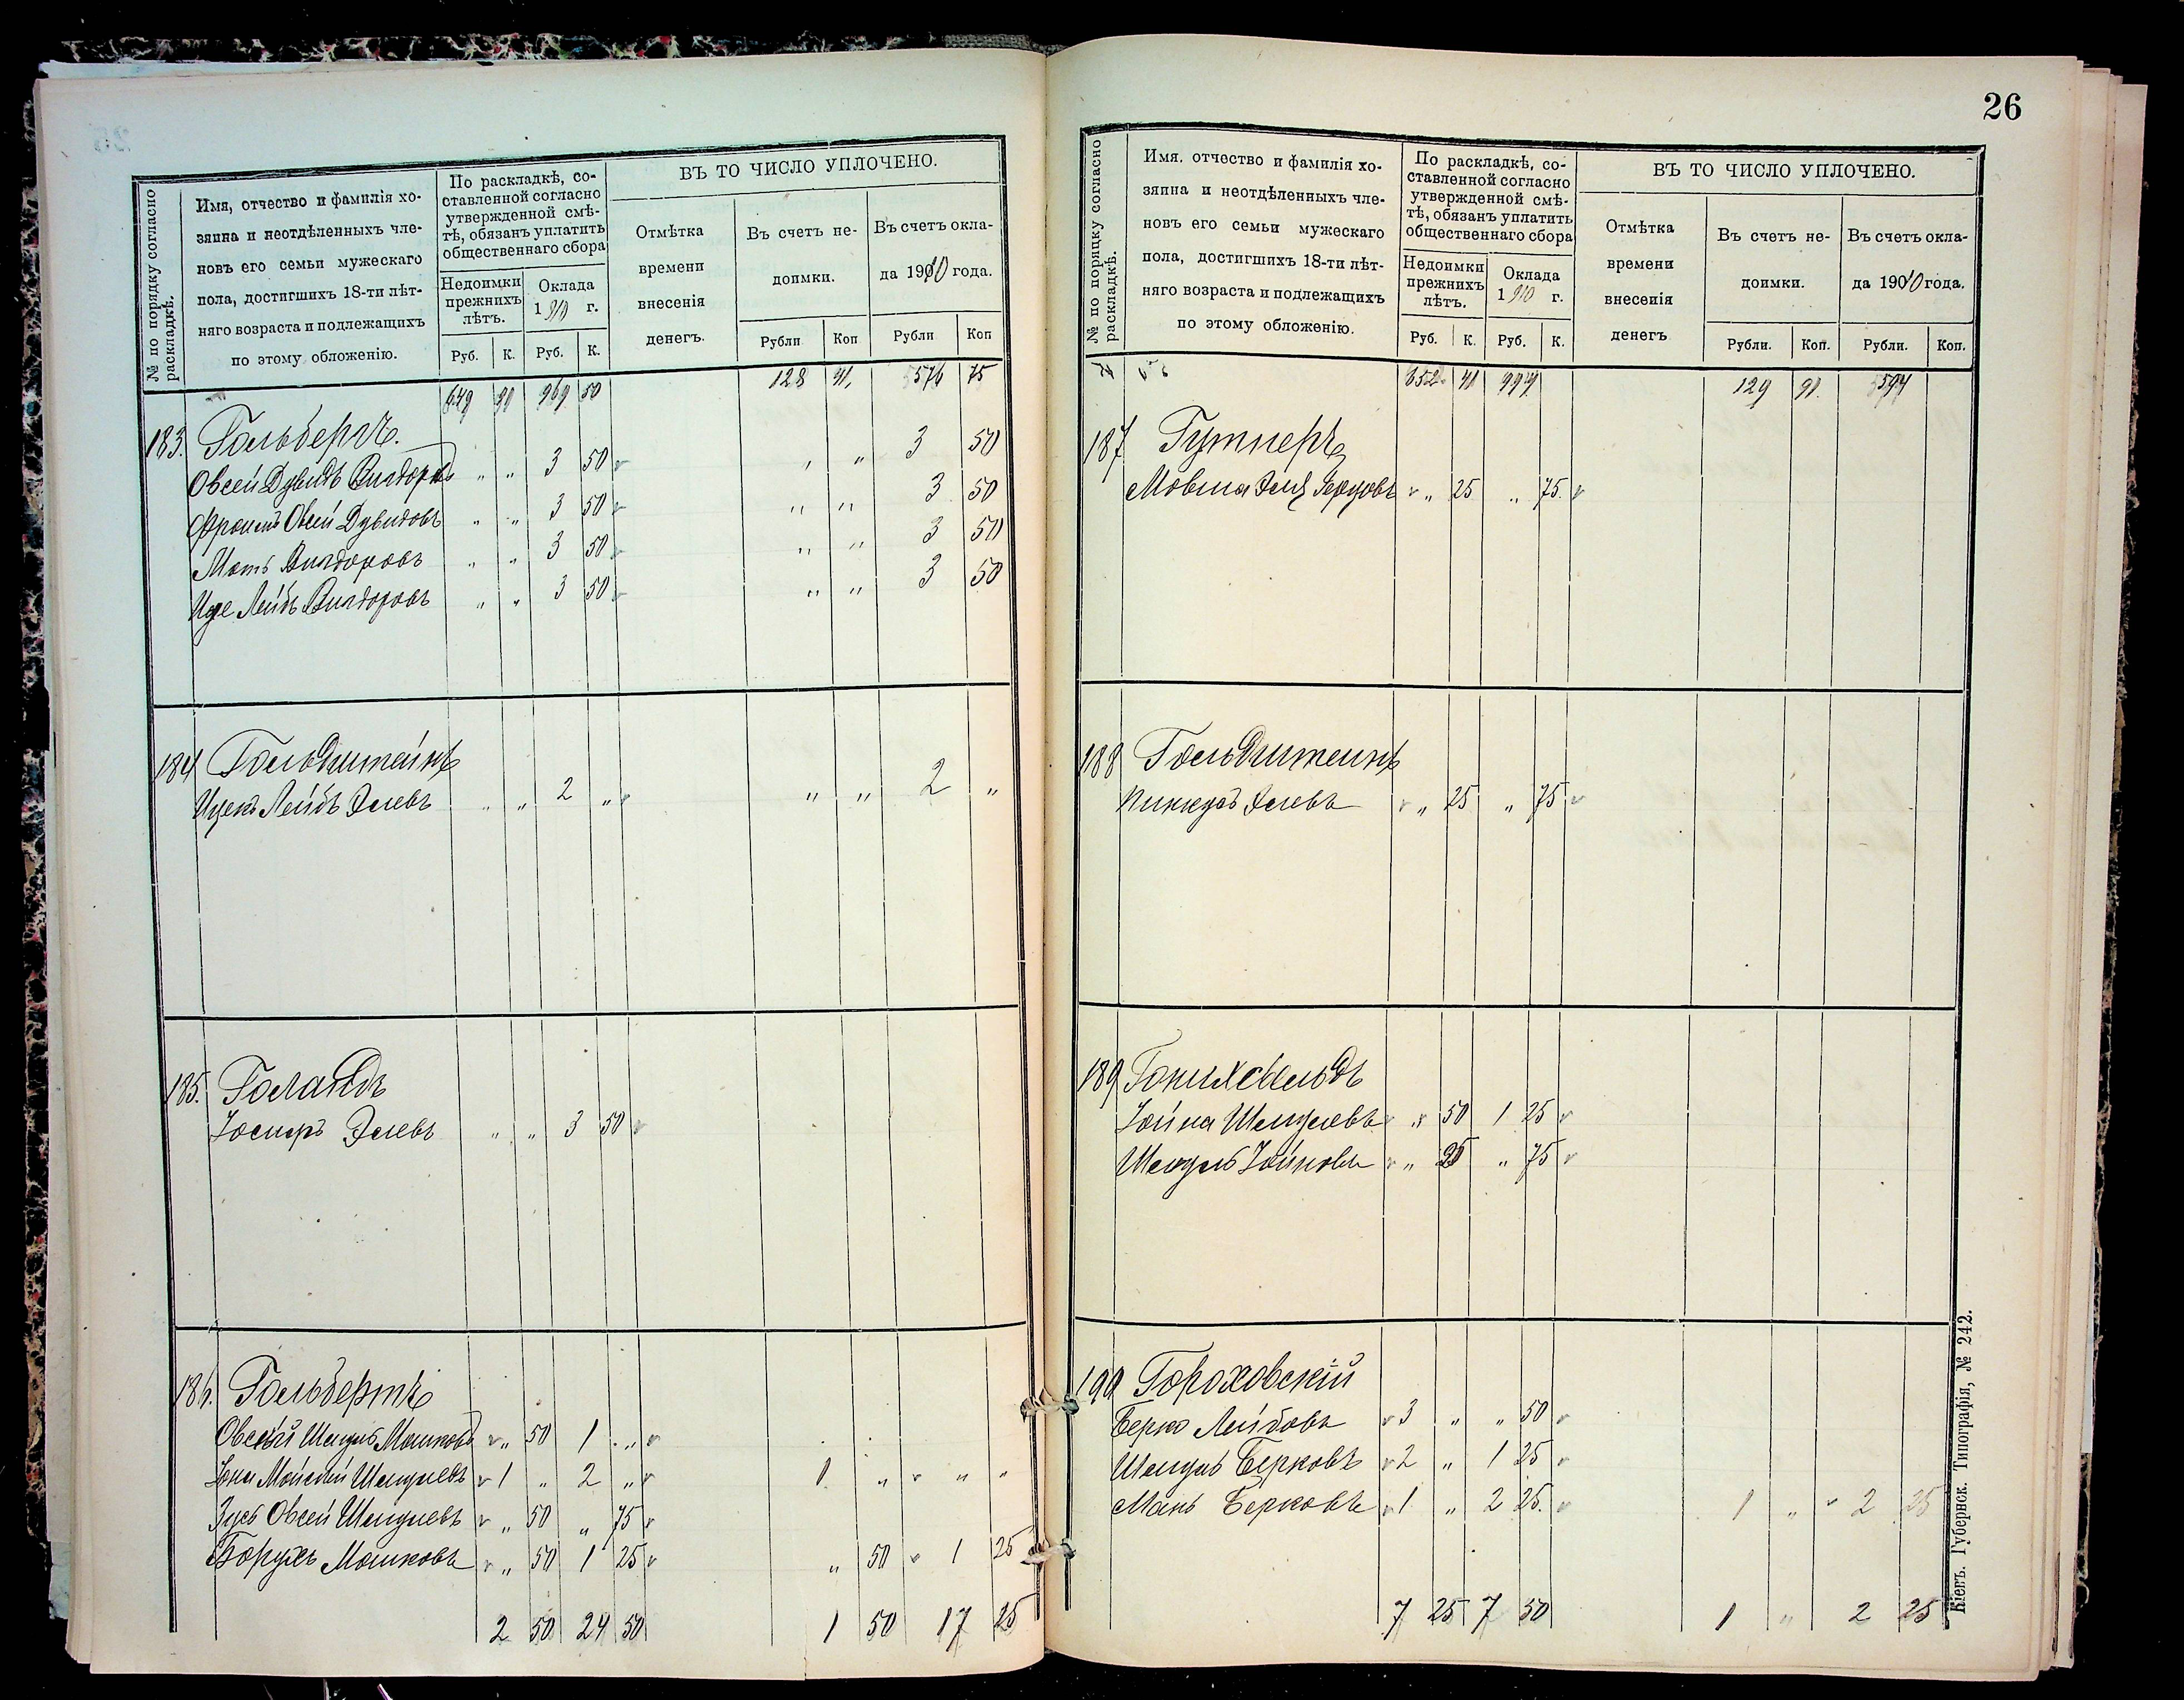 № по порядку согласно раскладкѣ.
Имя, отчество и фамилія хо-
зяина и неотдѣленныхъ чле-
новъ его семьи мужескаго
пола, достигшихъ 18-ти лѣт-
няго возраста и подлежащихъ
по этому обложенію.
По раскладкѣ, со-
ставленной согласно
утвержденной смѣ-
тѣ, обязанъ уплатить
общественнаго сбора
Недоимки
прежнихъ
лѣтъ.
Оклада
1910 г.
Руб. К. Руб. К.
ВЪ ТО ЧИСЛО УПЛОЧЕНО.
Отмѣтка
времени
внесенія
денегъ.
Въ счетъ не-
доимки.
Въ счетъ окла-
да 1910 года.
Рубли Коп Рубли Коп
649 90 969 50 128 41 576 75
183. Гольбергъ.
Овсей Дувидъ Вигдоровъ " " 3 50 " " 3 50
Фроимъ Овсей Дувидовъ " " 3 50 " " 3 50
Моть Вигдоровъ " " 3 50 " " 3 50
Иде Лейбъ Вигдоровъ " " 3 50 " " 3 50
184 Гольдштейнъ
Ицекъ Лейбъ Элевъ " " 2 " " " 2 "
185. Голандъ
Іосифъ Элевъ " " 3 50
186. Гольбертъ
Овсей Шендль Мошковъ " 50 1 "
Іона Мойсей Шендлевъ 1 " 2 " 1 " " "
Зусь Овсей Шендлевъ " 50 " 75
Борухъ Мошковъ " 50 1 25 " 50 1 25
2 50 24 50 1 50 17 25
26
№ по порядку согласно раскладкѣ.
Имя. отчество и фамилія хо-
зяина и неотдѣленныхъ чле-
новъ его семьи мужескаго
пола, достигшихъ 18-ти лѣт-
няго возраста и подлежащихъ
по этому обложенію.
По раскладкѣ, со-
ставленной согласно
утвержденной смѣ-
тѣ, обязанъ уплатить
общественнаго сбора
Недоимки
прежнихъ
лѣтъ.
Оклада
1910 г.
Руб. К. Руб. К.
ВЪ ТО ЧИСЛО УПЛОЧЕНО.
Отмѣтка
времени
внесенія
денегъ
Въ счетъ не-
доимки.
Въ счетъ окла-
да 1910 года.
Рубли. Коп. Рубли. Коп.
652 40 994 129 91 594
187 Гутнеръ
Мовша Элих Герцовъ " 25 " 75
188 Гольдштейнъ
Пинкусъ Элевъ " 25 " 75
189 Гонихфельдъ
Іойна Шендлевъ " 50 1 25
Шендль Іойновъ " 25 " 75
190 Гороховскій
Берко Лейбовъ 3 " " 50
Шендль Берковъ 2 " 1 25
Мань Берковъ 1 " 2 25 1 " 2 25
7 25 7 50 1 " 2 25
Кіевъ. Губернск. Типографія, № 242.